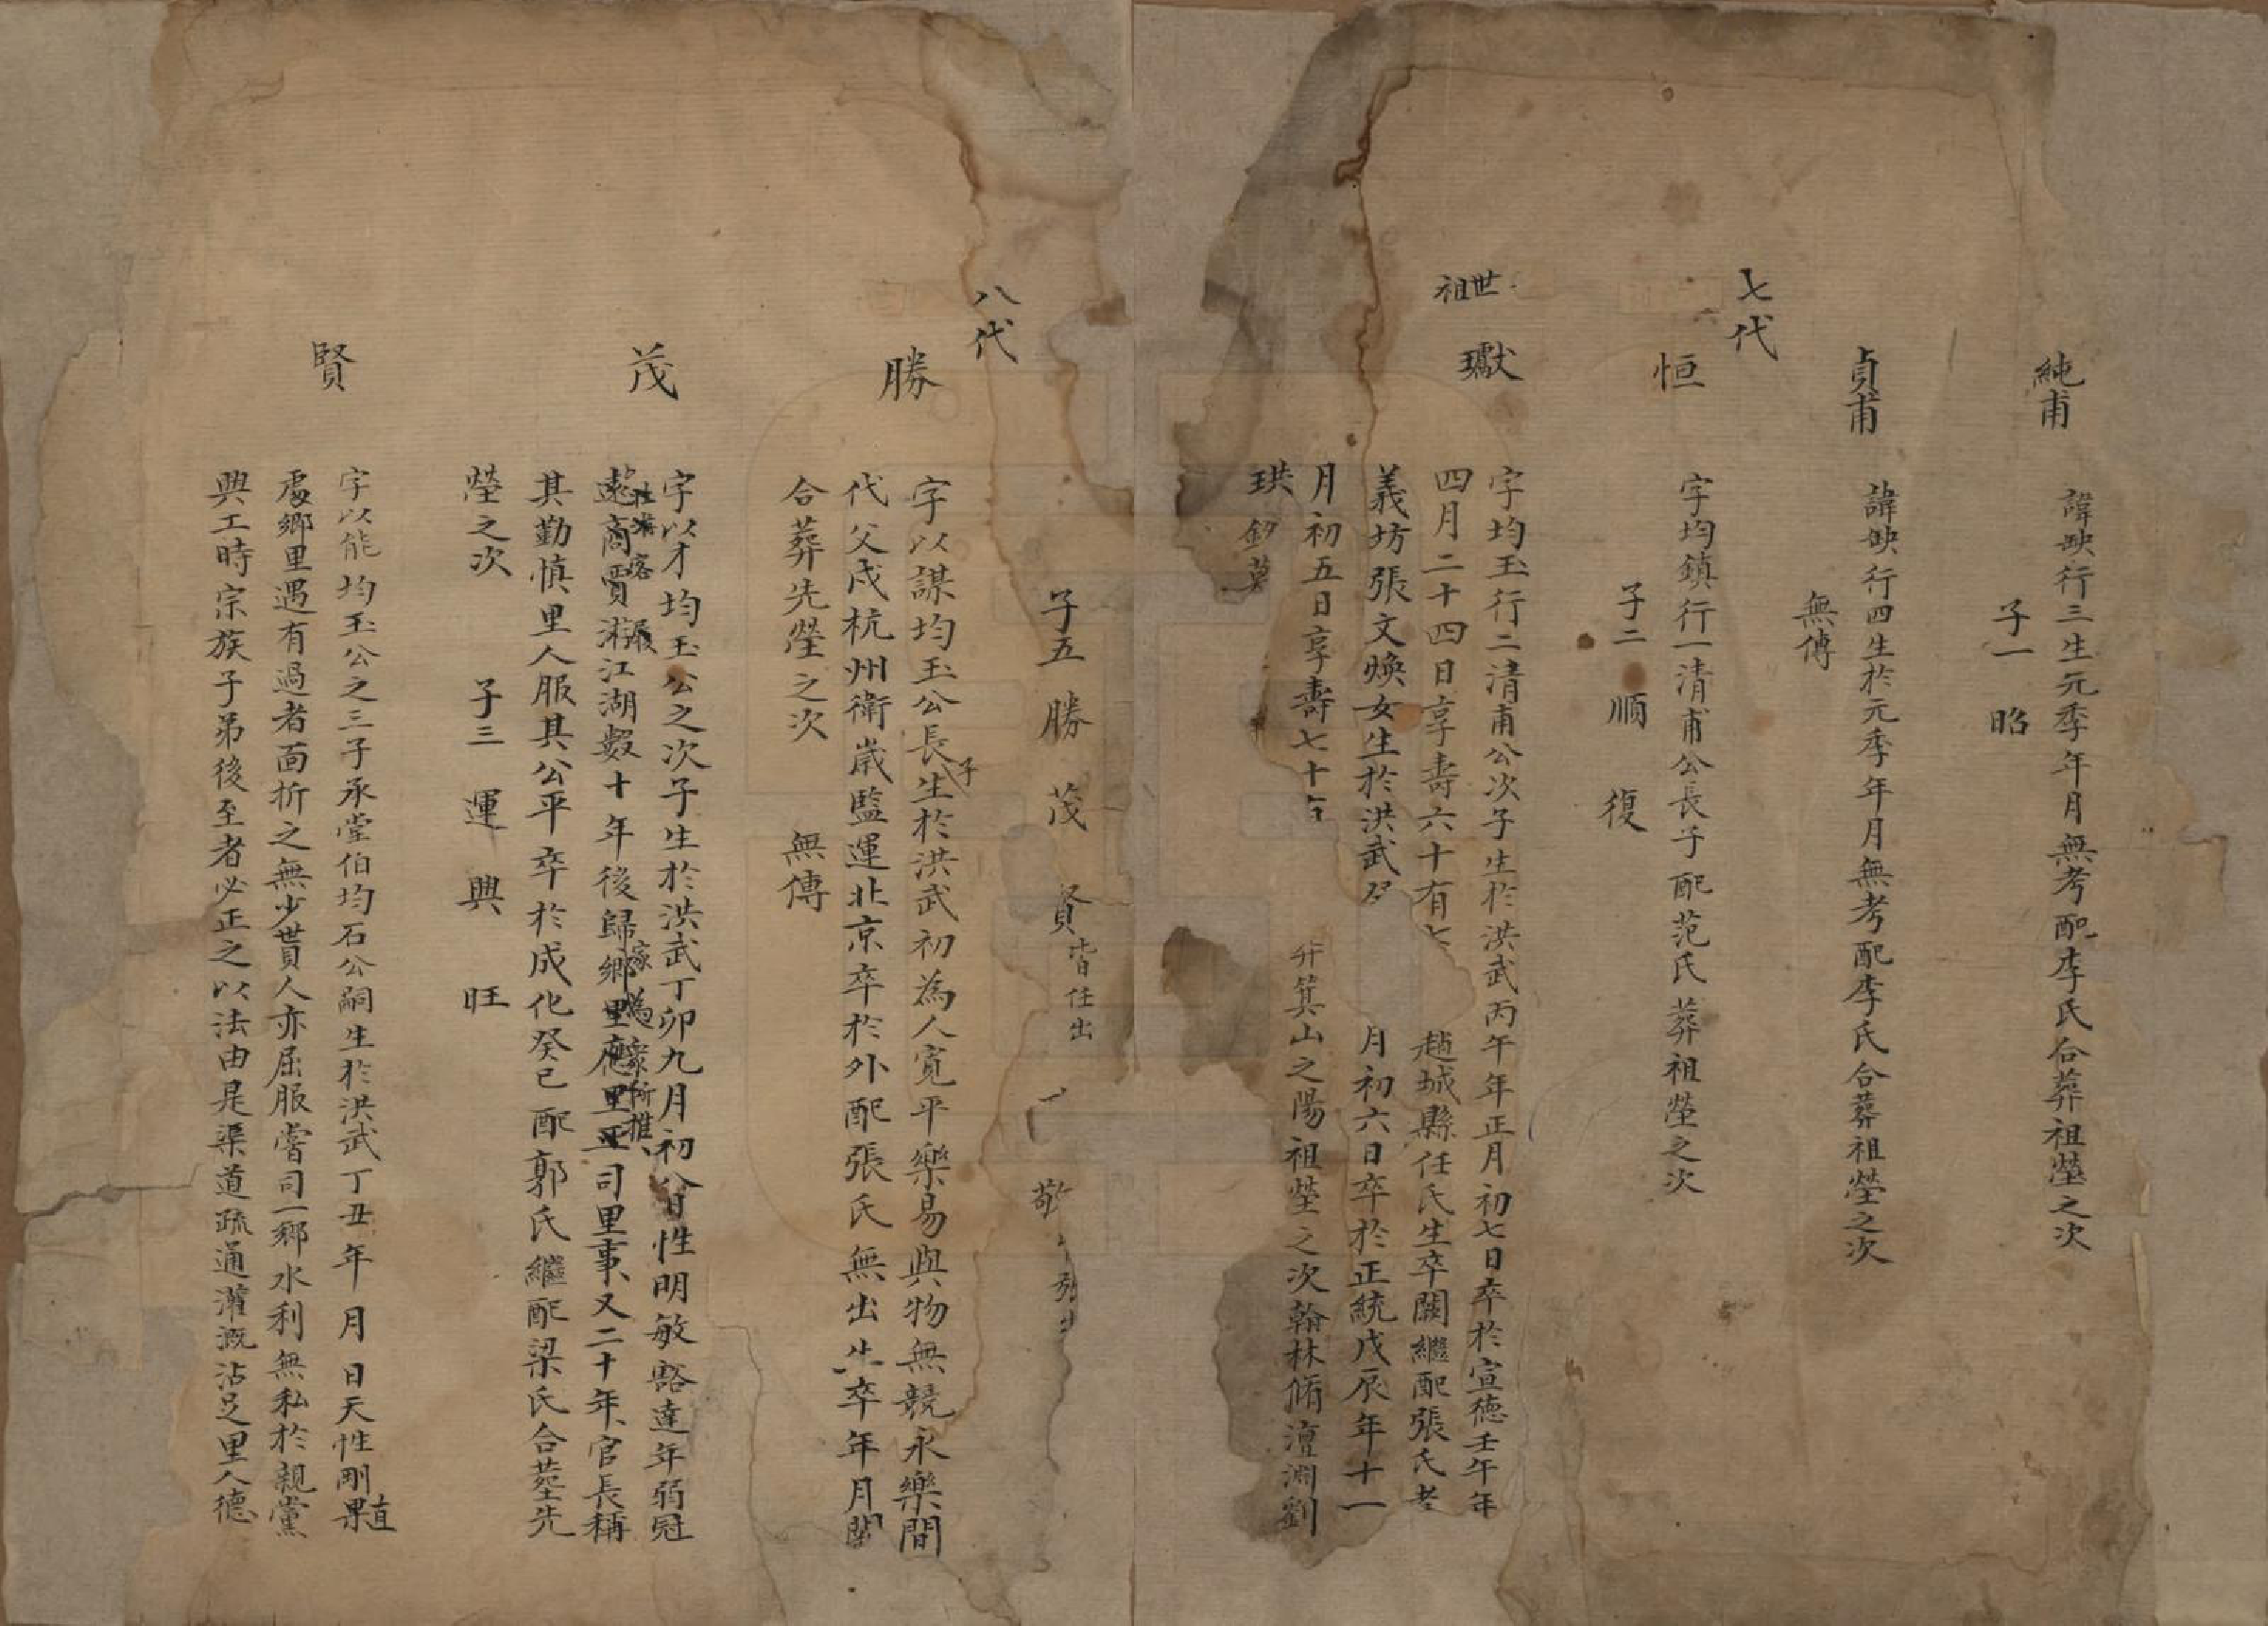 純甫
諱映行三生元季年月無考配李氏合葬祖塋之次
子一　昭
貞甫
諱映行四生於元季年月無考配李氏合葬祖塋之次
無傳
七代
恒
字均鎮行一清甫公長子配范氏葬祖塋之次
子二　順　復
世
祖
瓛
字均玉行二清甫公次子生於洪武丙午年正月初七日卒於宣德壬午年
四月二十四日享壽六十有七　趙城縣任氏生卒闕繼配張氏孝
義坊張文煥女生於洪武　月初六日卒於正統戊辰年十一
月初五日享壽七十有　箕山之陽祖塋之次翰林脩澶淵劉
珙
子五　勝　茂　賢　皆任出　敬　張出
八代
勝
字以謀均玉公長子生於洪武初為人寬平樂易與物無競永樂間
代父戍杭州衛歲監運北京卒於外配張氏無出生卒年月闕
合葬先塋之次　無傳
茂
字以才均玉公之次子生於洪武丁卯九月初八日性明敏豁達年弱冠
遠商賈湘江湖數十年後歸鄉里應里正司里事又二十年官長稱
家為衆所推
其勤慎里人服其公平卒於成化癸巳配郭氏繼配梁氏合葬先
塋之次　子三　運　興　旺
賢
字以能均玉公之三子承堂伯均石公嗣生於洪武丁丑年月日天性剛直果
處鄉里遇有過者面折之無少貰人亦屈服嘗司一鄉水利無私於親黨
興工時宗族子弟後至者必正之以法由是渠道疏通灌溉沾足里人德